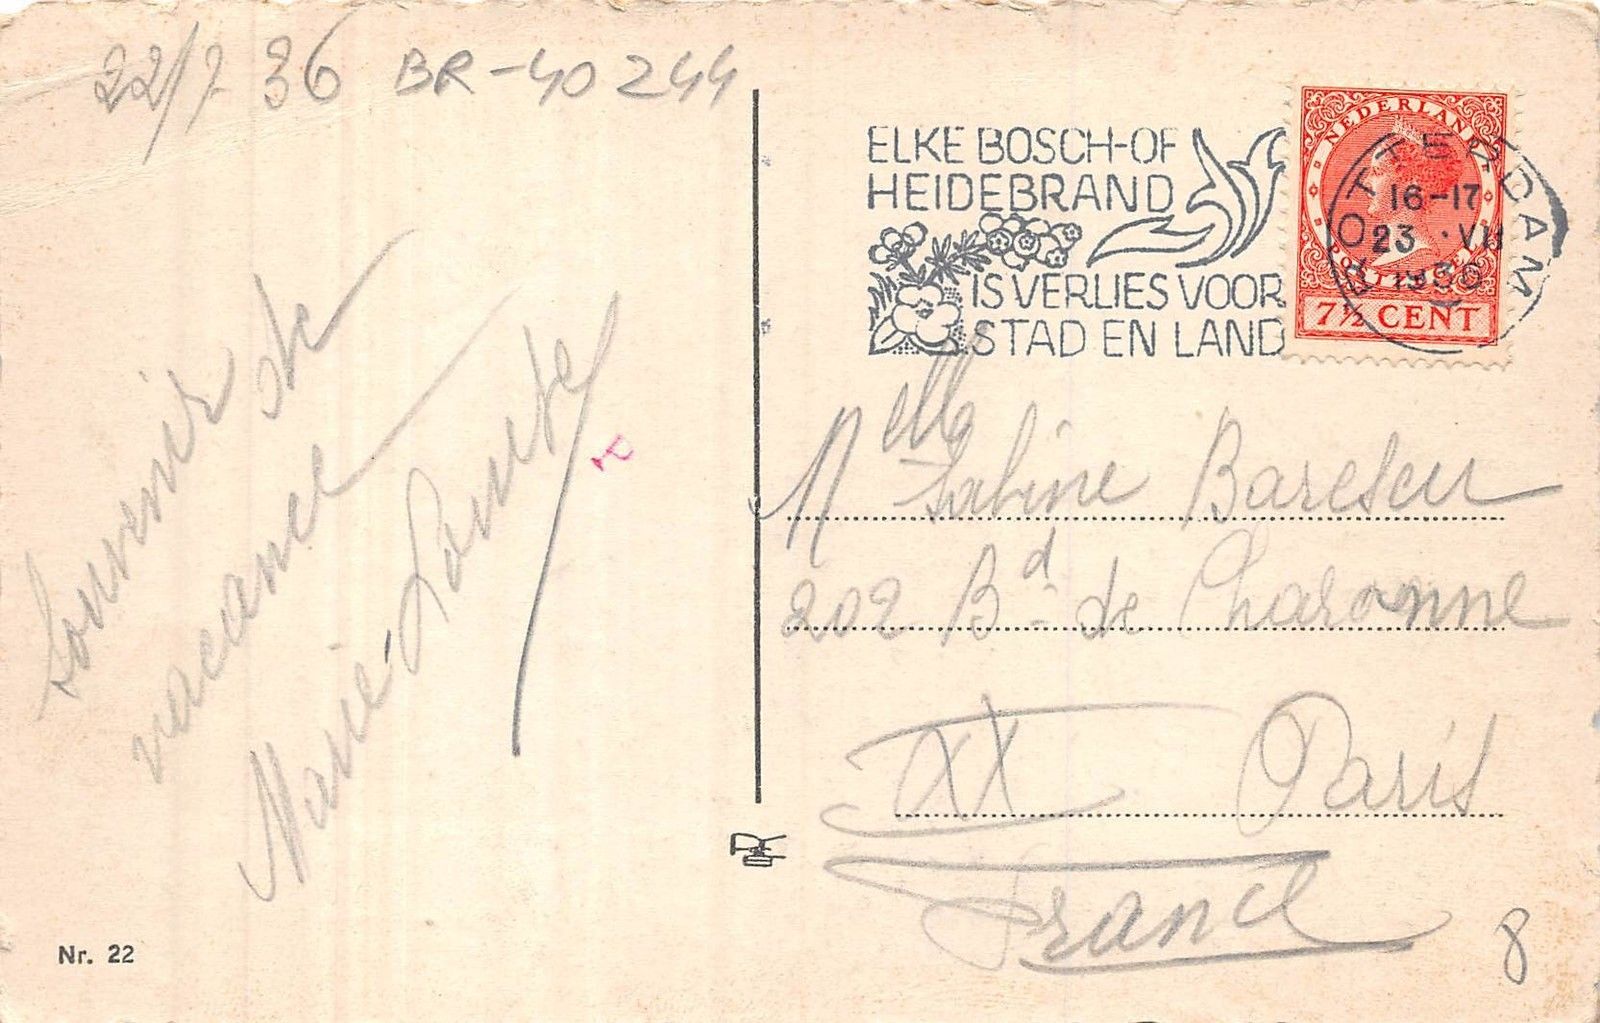 22/7 36 BR-40244
Souvenir de
vacance
Marie-Louise
ELKE BOSCH-OF
HEIDEBRAND
IS VERLIES VOOR
STAD EN LAND
NEDERLAND
7½ CENT
ROTTERDAM
16-17
23 · VII
1936
Melle Sabine
202 Bd de Charonne
XX Paris
France
Nr. 22
8